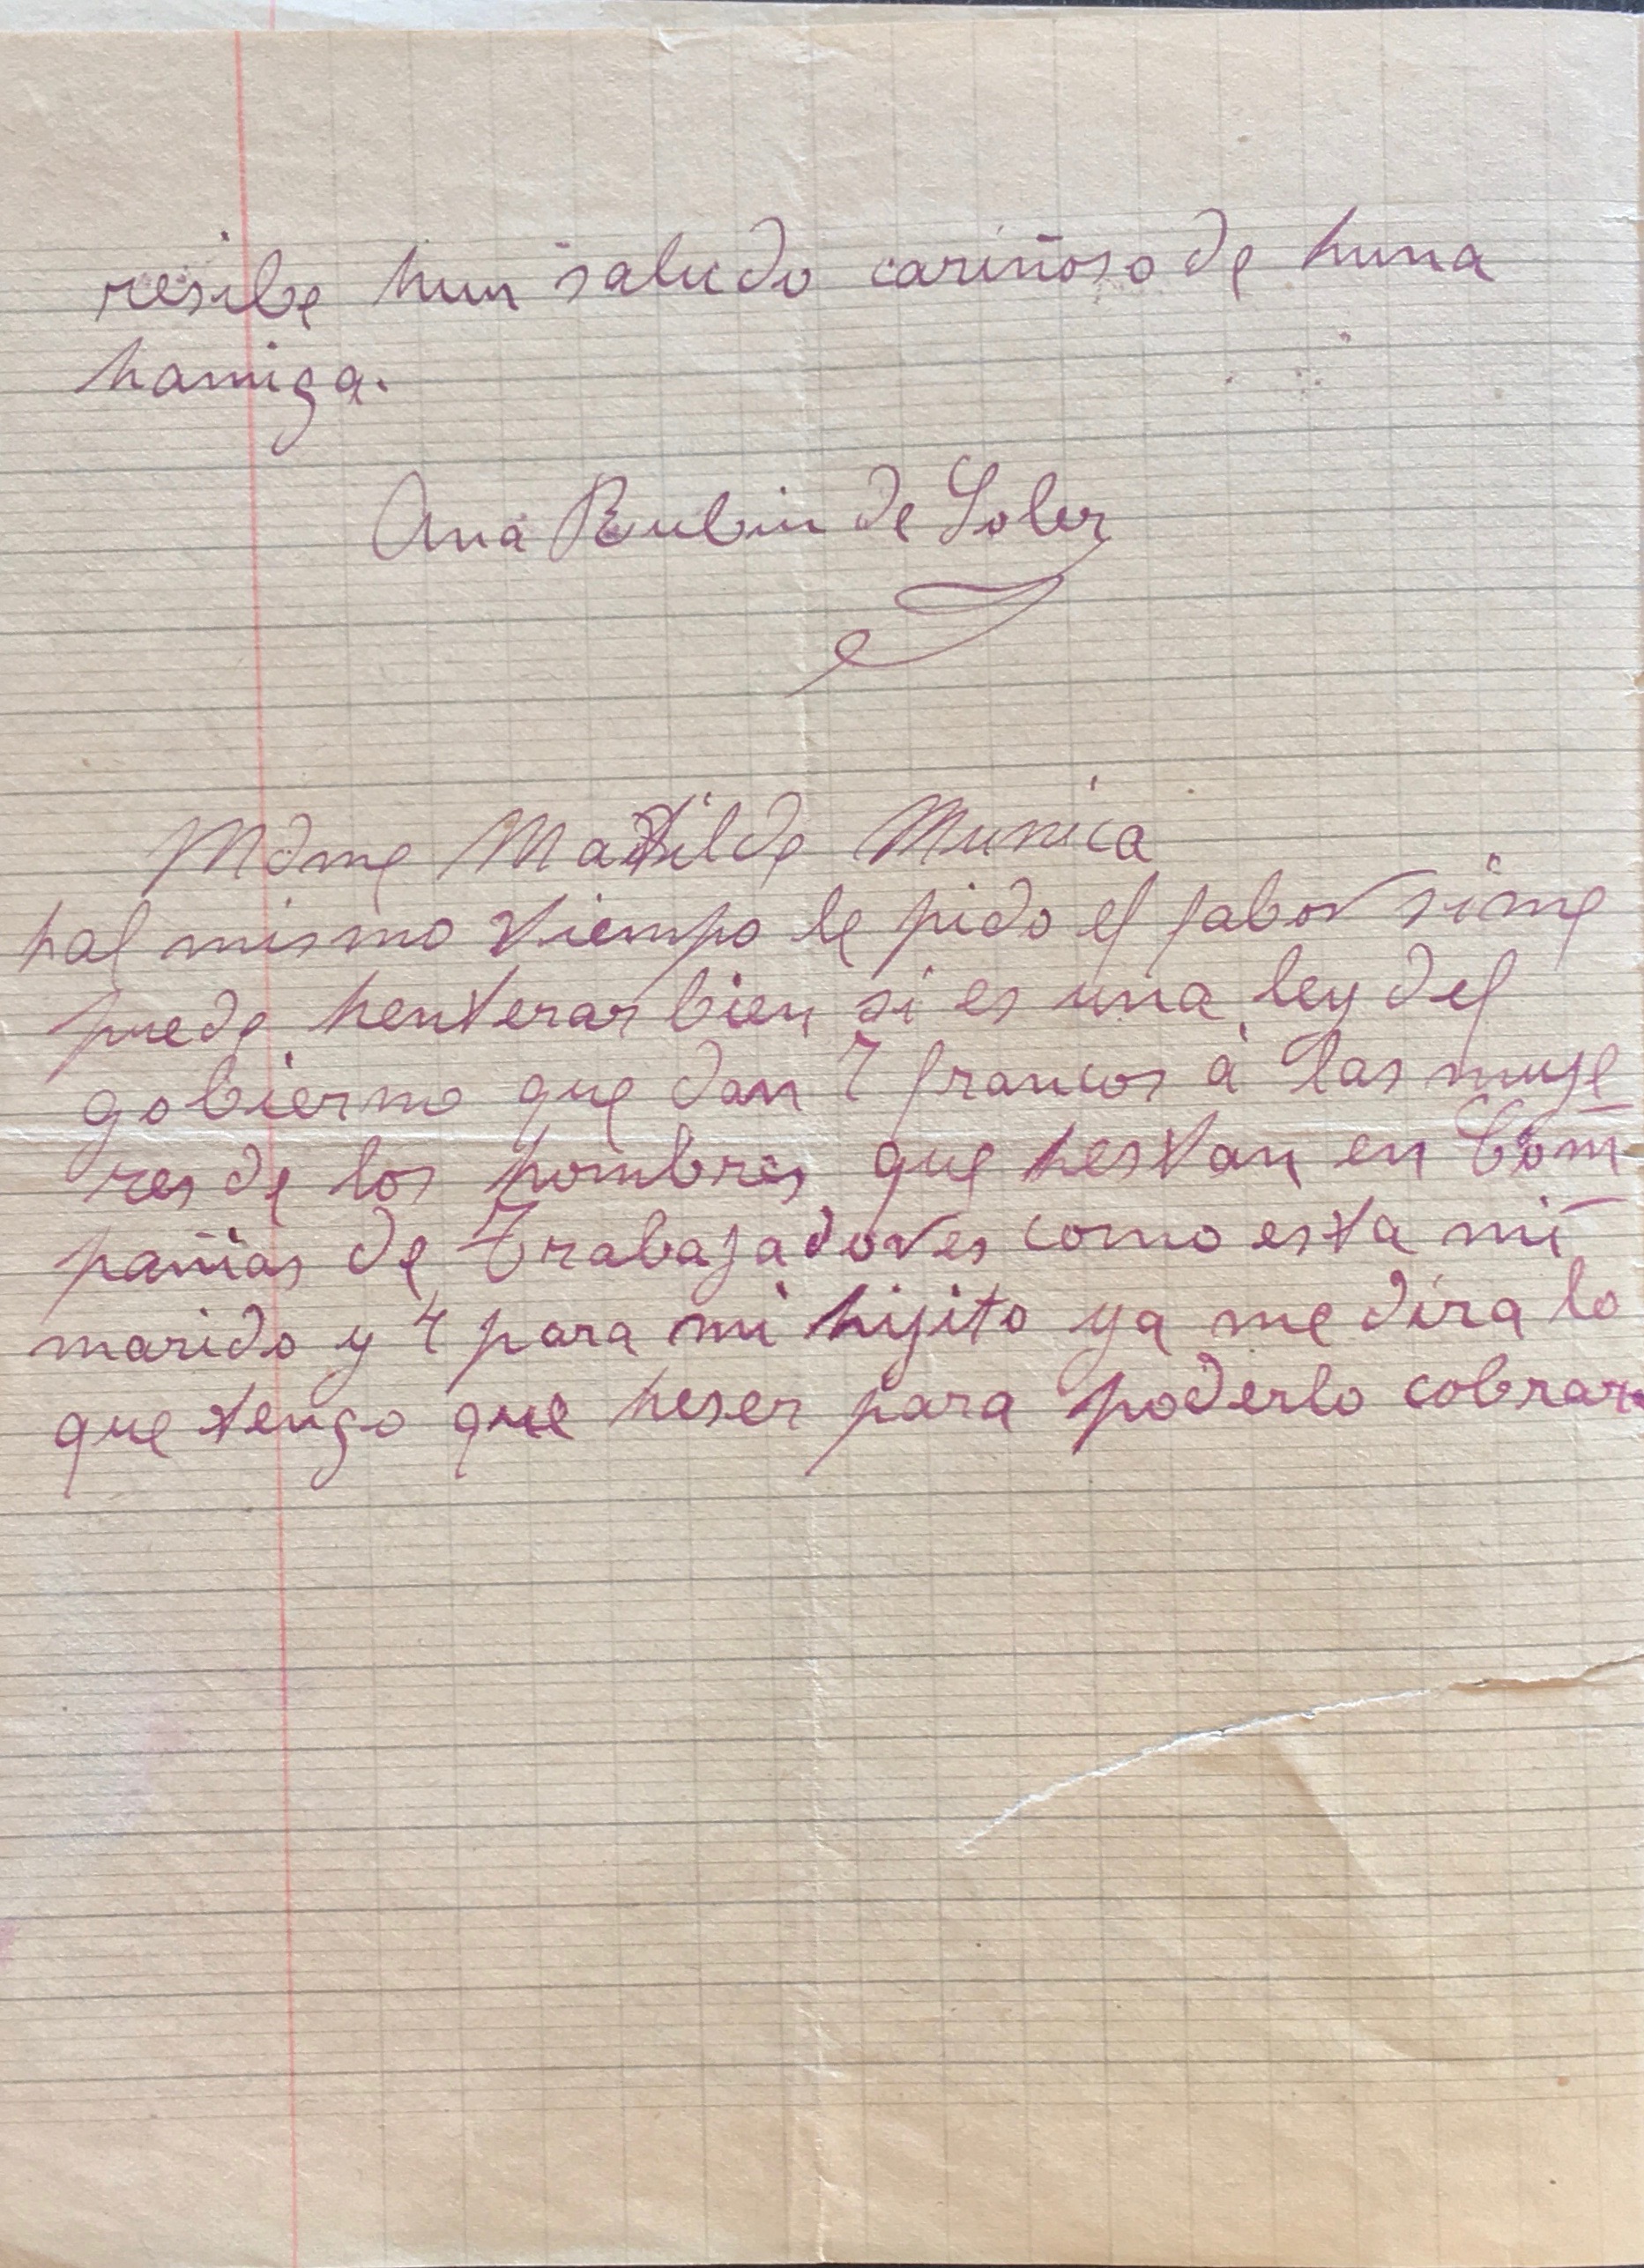 resibe hun saludo cariñoso de huna
hamiga.
Ana Rubin de Soler
Mdme Matilde Munica
hal mismo tiempo le pido el fabor si me
puede henterar bien si es una ley del
gobierno que dan 7 francos a las muje
res de los hombres que hestan en Com
pañias de Trabajadores como esta mi
marido y 4 para mi hijito ya me dira lo
que tengo que heser para poderlo cobrar.